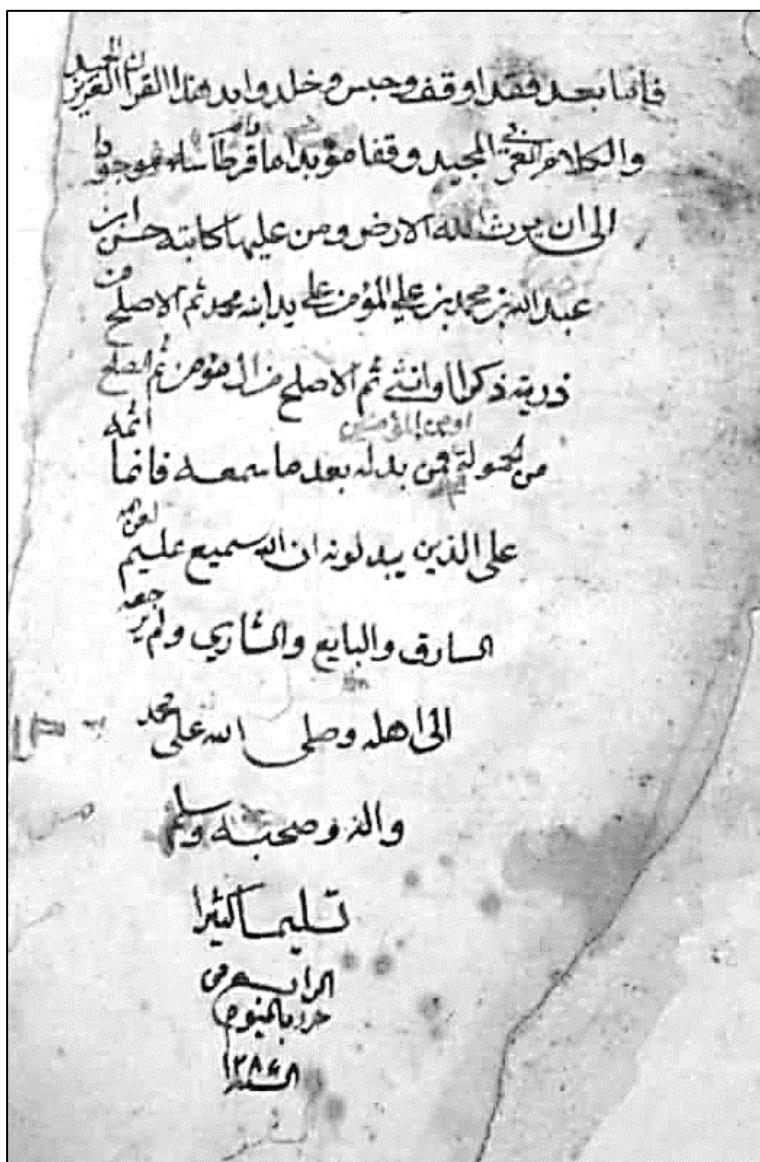 فانما بعد فقد اوقف وحبس وخلد وابد هذا القران العزيز المجيد
والكلام العربي المجيد وقفا مؤبدا ما قرطاسه موجودا
الى ان يرث الله الارض ومن عليها كاتبه حسن ابن
عبد الله بن محمد بن علي المؤمن على يد ابنه محمد ثم الاصلح من
ذريته ذكرا او انثى ثم الاصلح من ال مؤمن ثم الصلح
او من المؤمنين
من فمن بدله بعد ما سمعه فانما اثمه
على الذين يبدلونه ان الله سميع عليم لعن الله
السارق والبايع والشاري ولم يرجعه
الى اهله وصلى الله على محمد
واله وصحبه وسلم
تسليما كثيرا
حرر باليوم
السنه ١٢٨٤